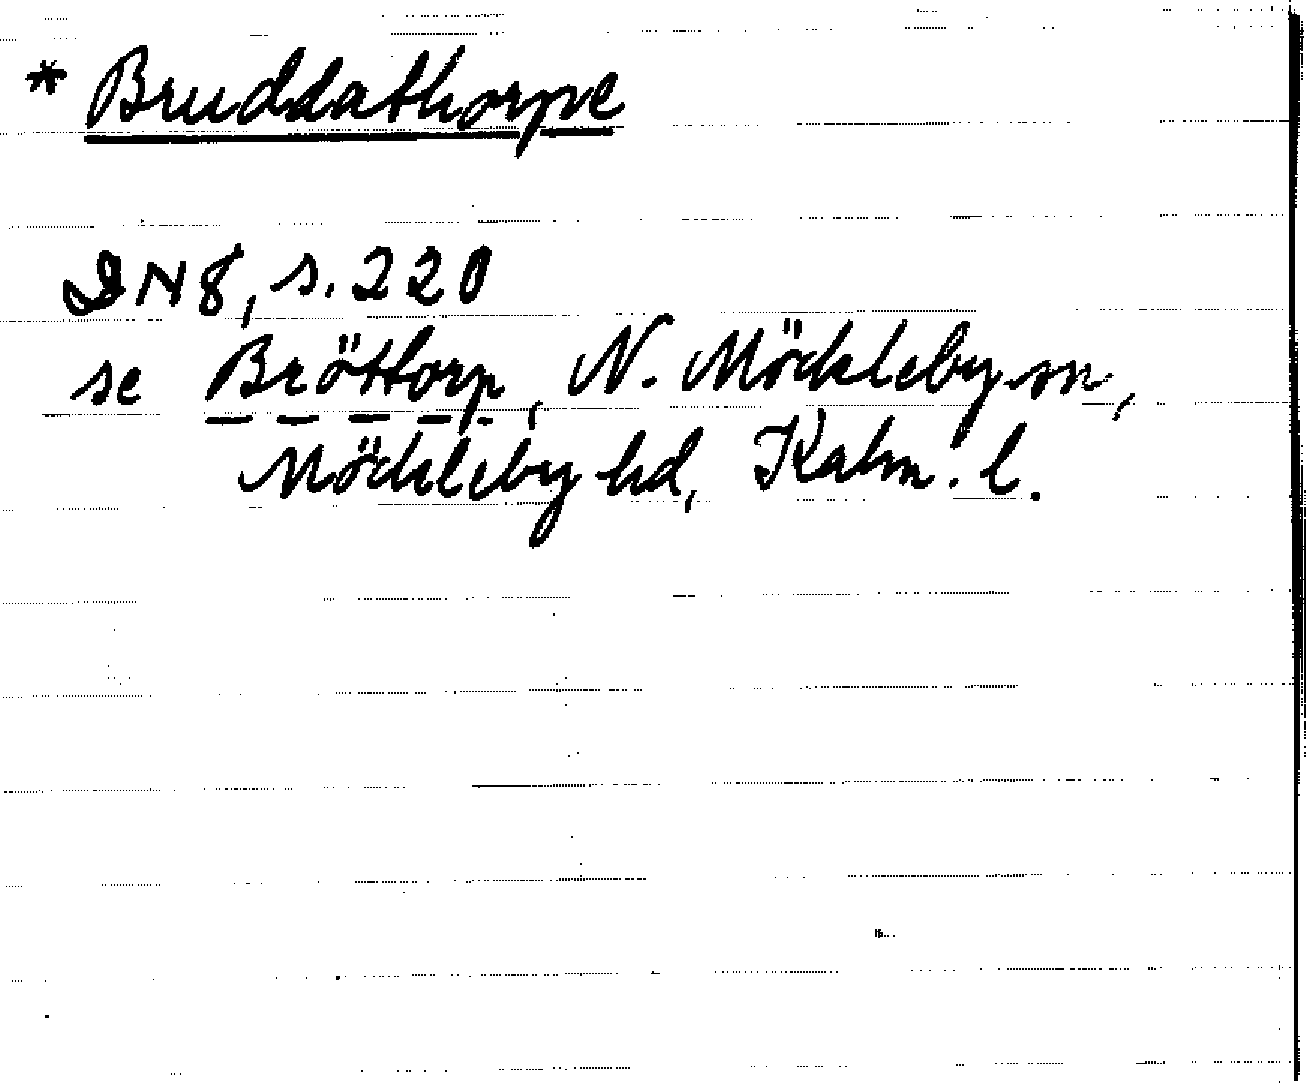 * Bruddathorpe
DN8, s. 220
se Bröttorp, N. Möckleby sn,
Möckleby hd, Kalm. l.